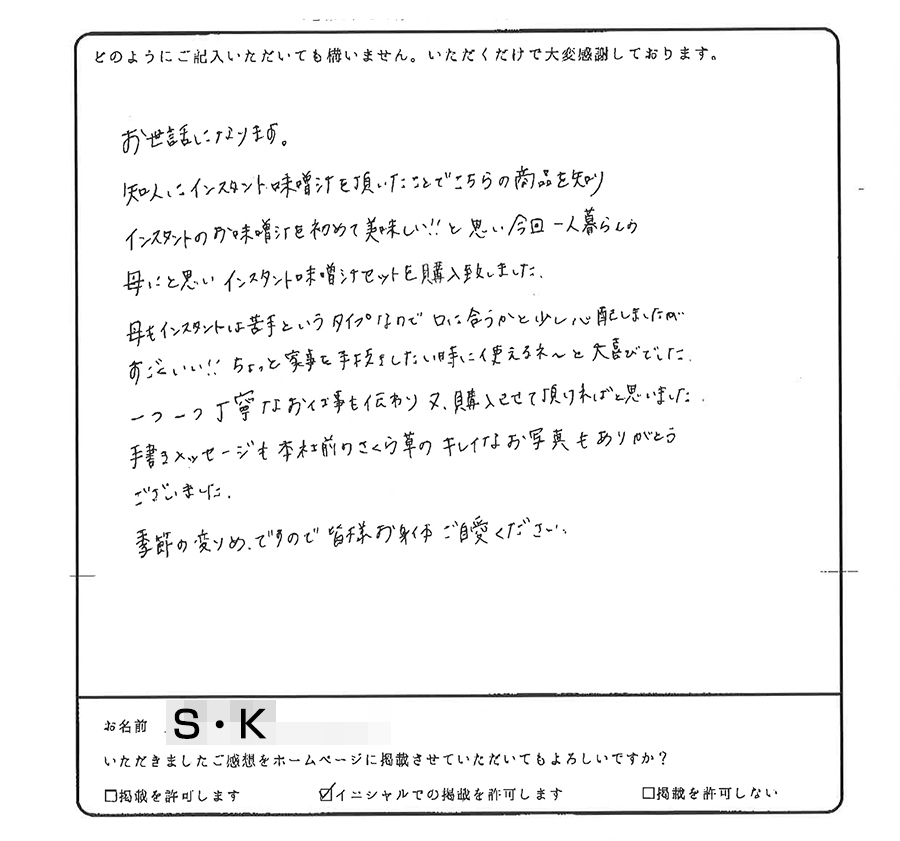 どのようにご記入いただいても構いません。いただくだけで大変感謝しております。
お世話になります。
知人にインスタント味噌汁を頂いたことでこちらの商品を知り
インスタントのお味噌汁を初めて美味しい!!と思い今回一人暮らしの
母にと思いインスタント味噌汁セットを購入致しました。
母もインスタントは苦手というタイプなので口に合うかと少し心配しましたが
すごくいい!!ちょっと家事を手抜きしたい時に使えるネ〜と大喜びでした。
一つ一つ丁寧なお仕事も伝わり又、購入させて頂ければと思いました。
手書きメッセージも本社前のさくら草のキレイなお写真もありがとう
ございました。
季節の変りめ、ですので皆様お身体ご自愛ください。
お名前 S・K
いただきましたご感想をホームページに掲載させていただいてもよろしいですか?
□掲載を許可します ☑イニシャルでの掲載を許可します □掲載を許可しない